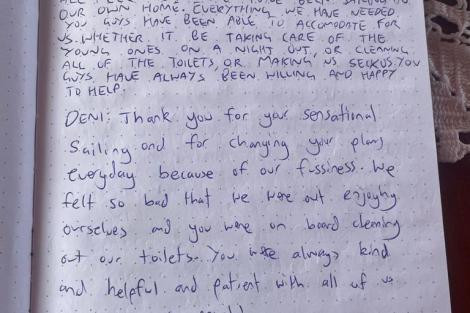 OUR OWN HOME. EVERYTHING WE HAVE NEEDED
YOU GUYS HAVE BEEN ABLE TO ACCOMODATE FOR
US. WHETHER IT BE TAKING CARE OF THE
YOUNG ONES ON A NIGHT OUT, OR CLEANING
ALL OF THE TOILETS, OR MAKING US SEICKUS. YOU
GUYS HAVE ALWAYS BEEN WILLING AND HAPPY
TO HELP.
DENI: Thank you for your sensational
Sailing and for changing your plans
everyday because of our fussiness. We
felt so bad that we were out enjoying
ourselves and you were on board cleaning
out our toilets. You were always kind
and helpful and patient with all of us